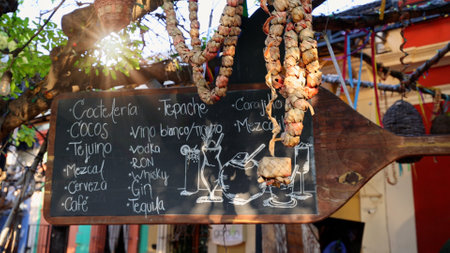 Coctelería
COCOS
Tejuino
Mezcal
Cerveza
Café
Tepache
Vino blanco/tinto
Vodka
RON
Whisky
Gin
Tequila
Corajillo
Mezcal